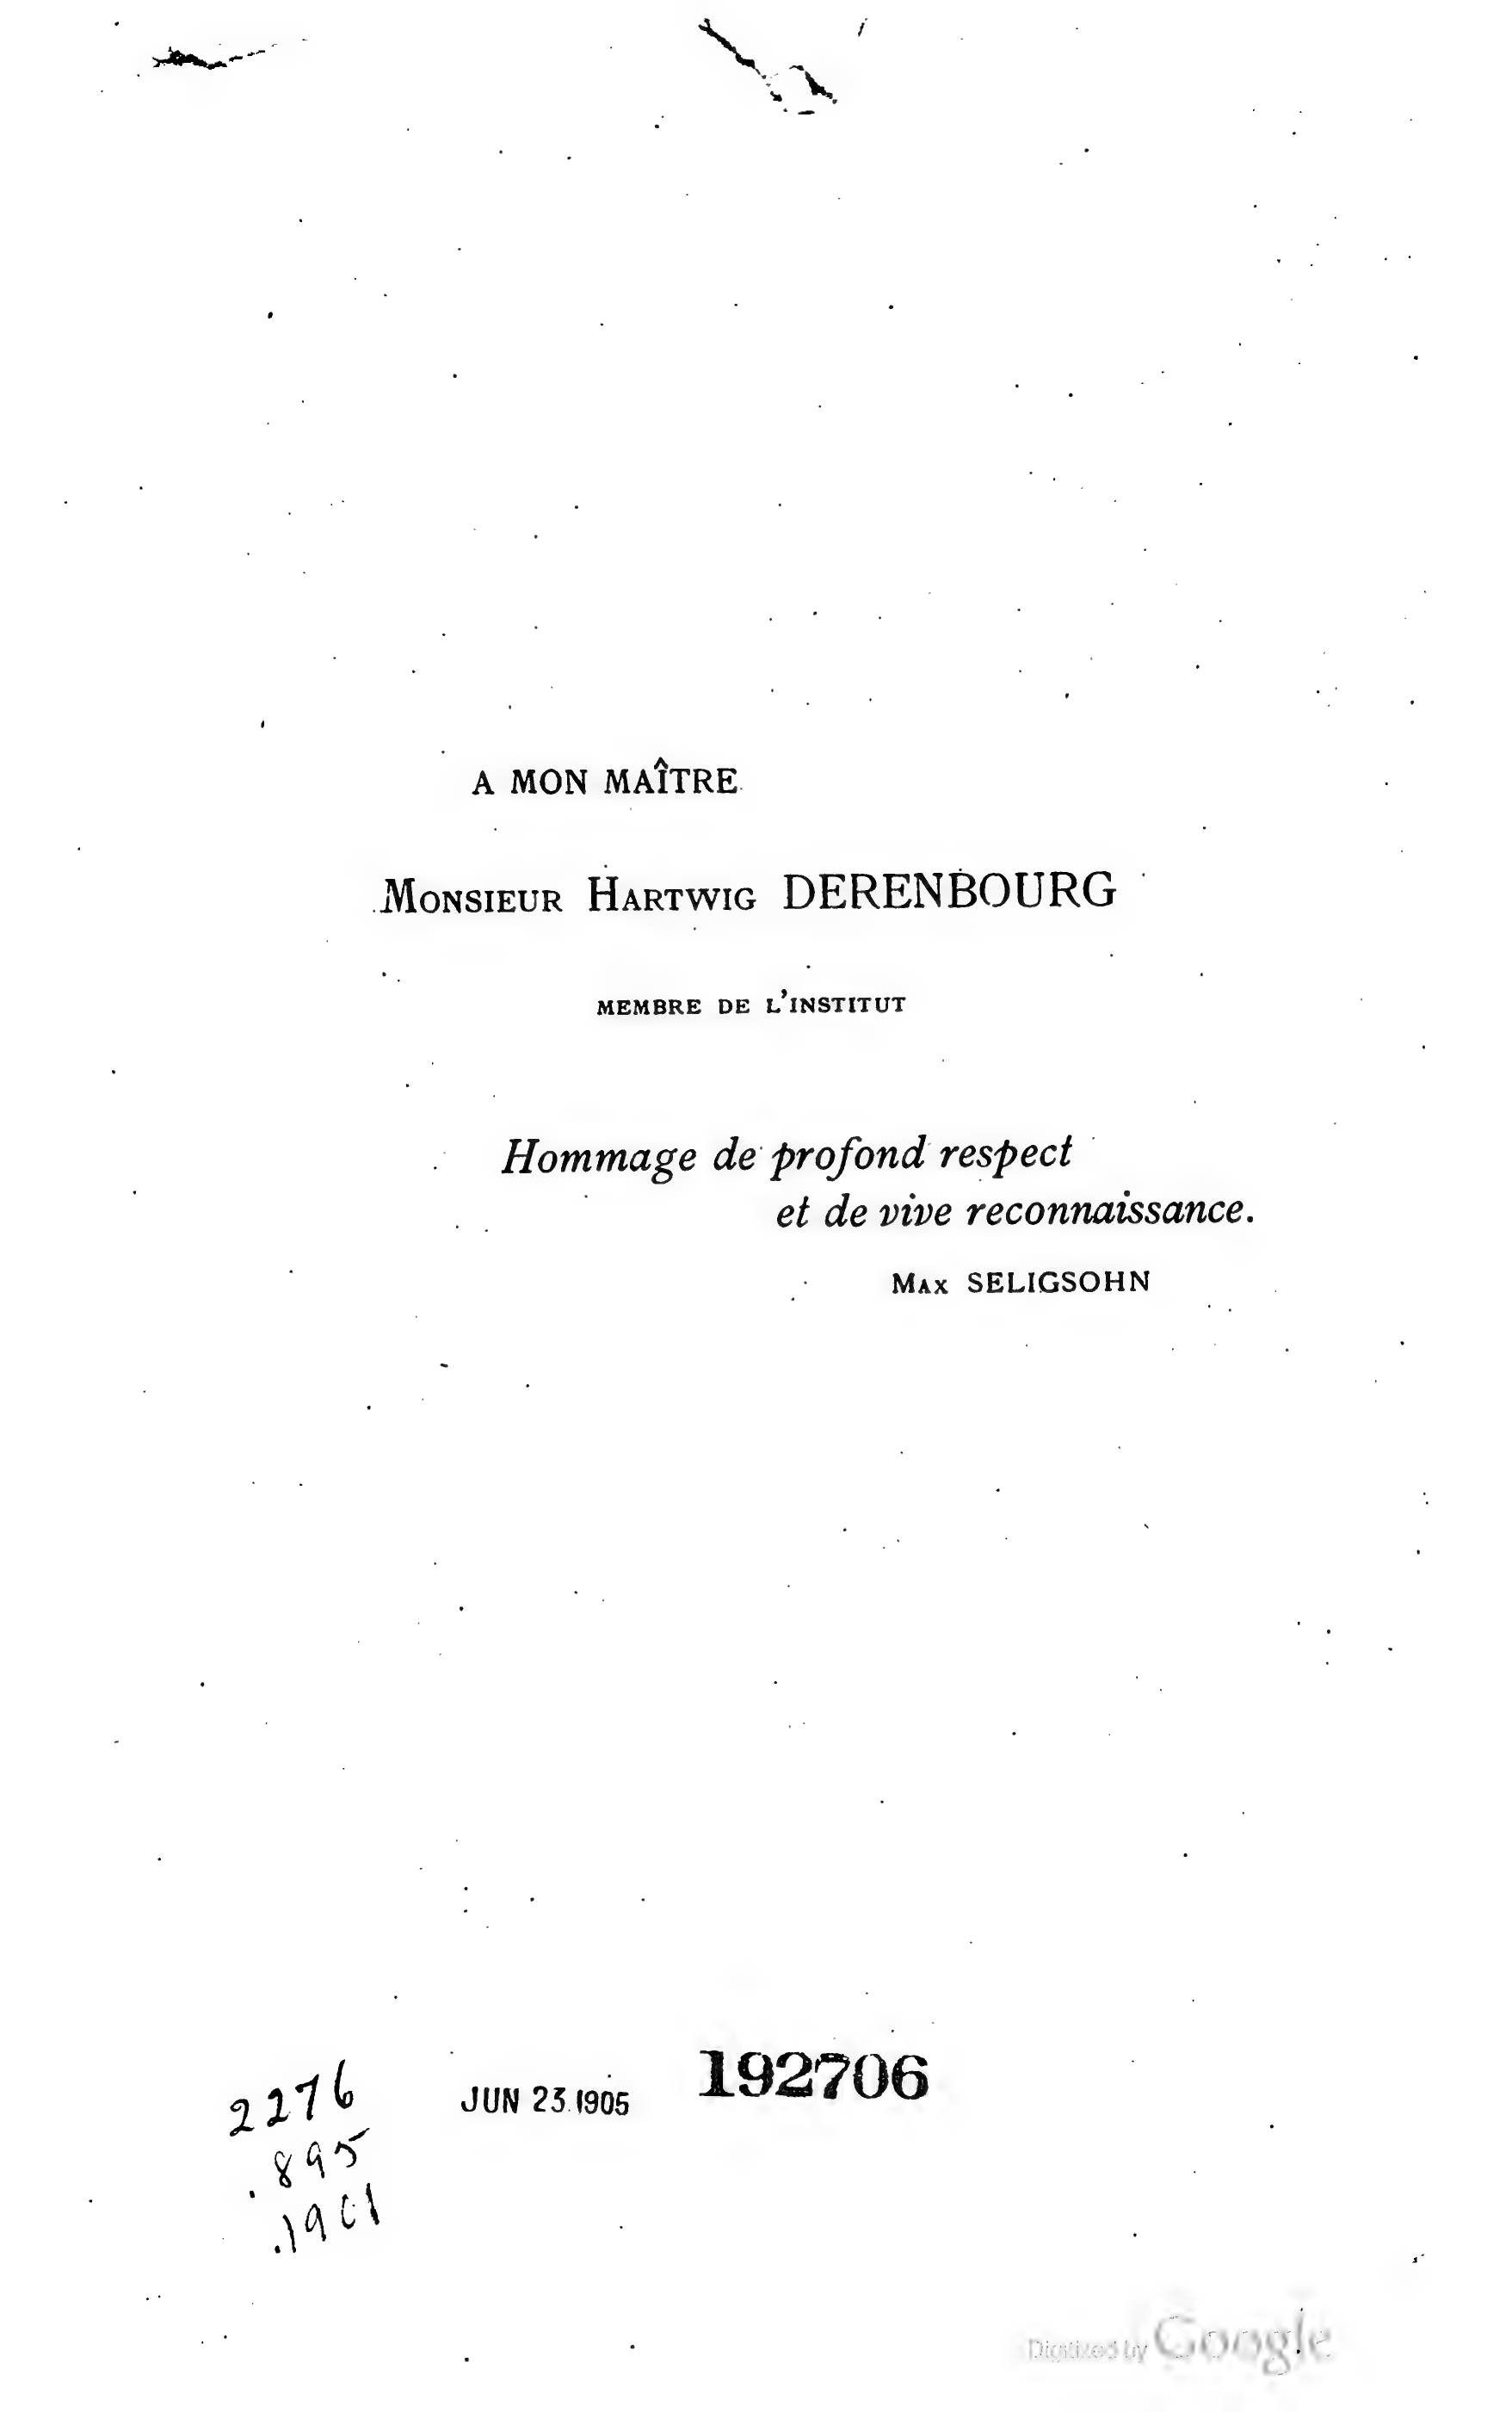 A MON MAÎTRE
MONSIEUR HARTWIG DERENBOURG
MEMBRE DE L'INSTITUT
Hommage de profond respect
et de vive reconnaissance.
MAX SELIGSOHN
2276
.895
.1901
JUN 23 1905
192706
Digitized by Google